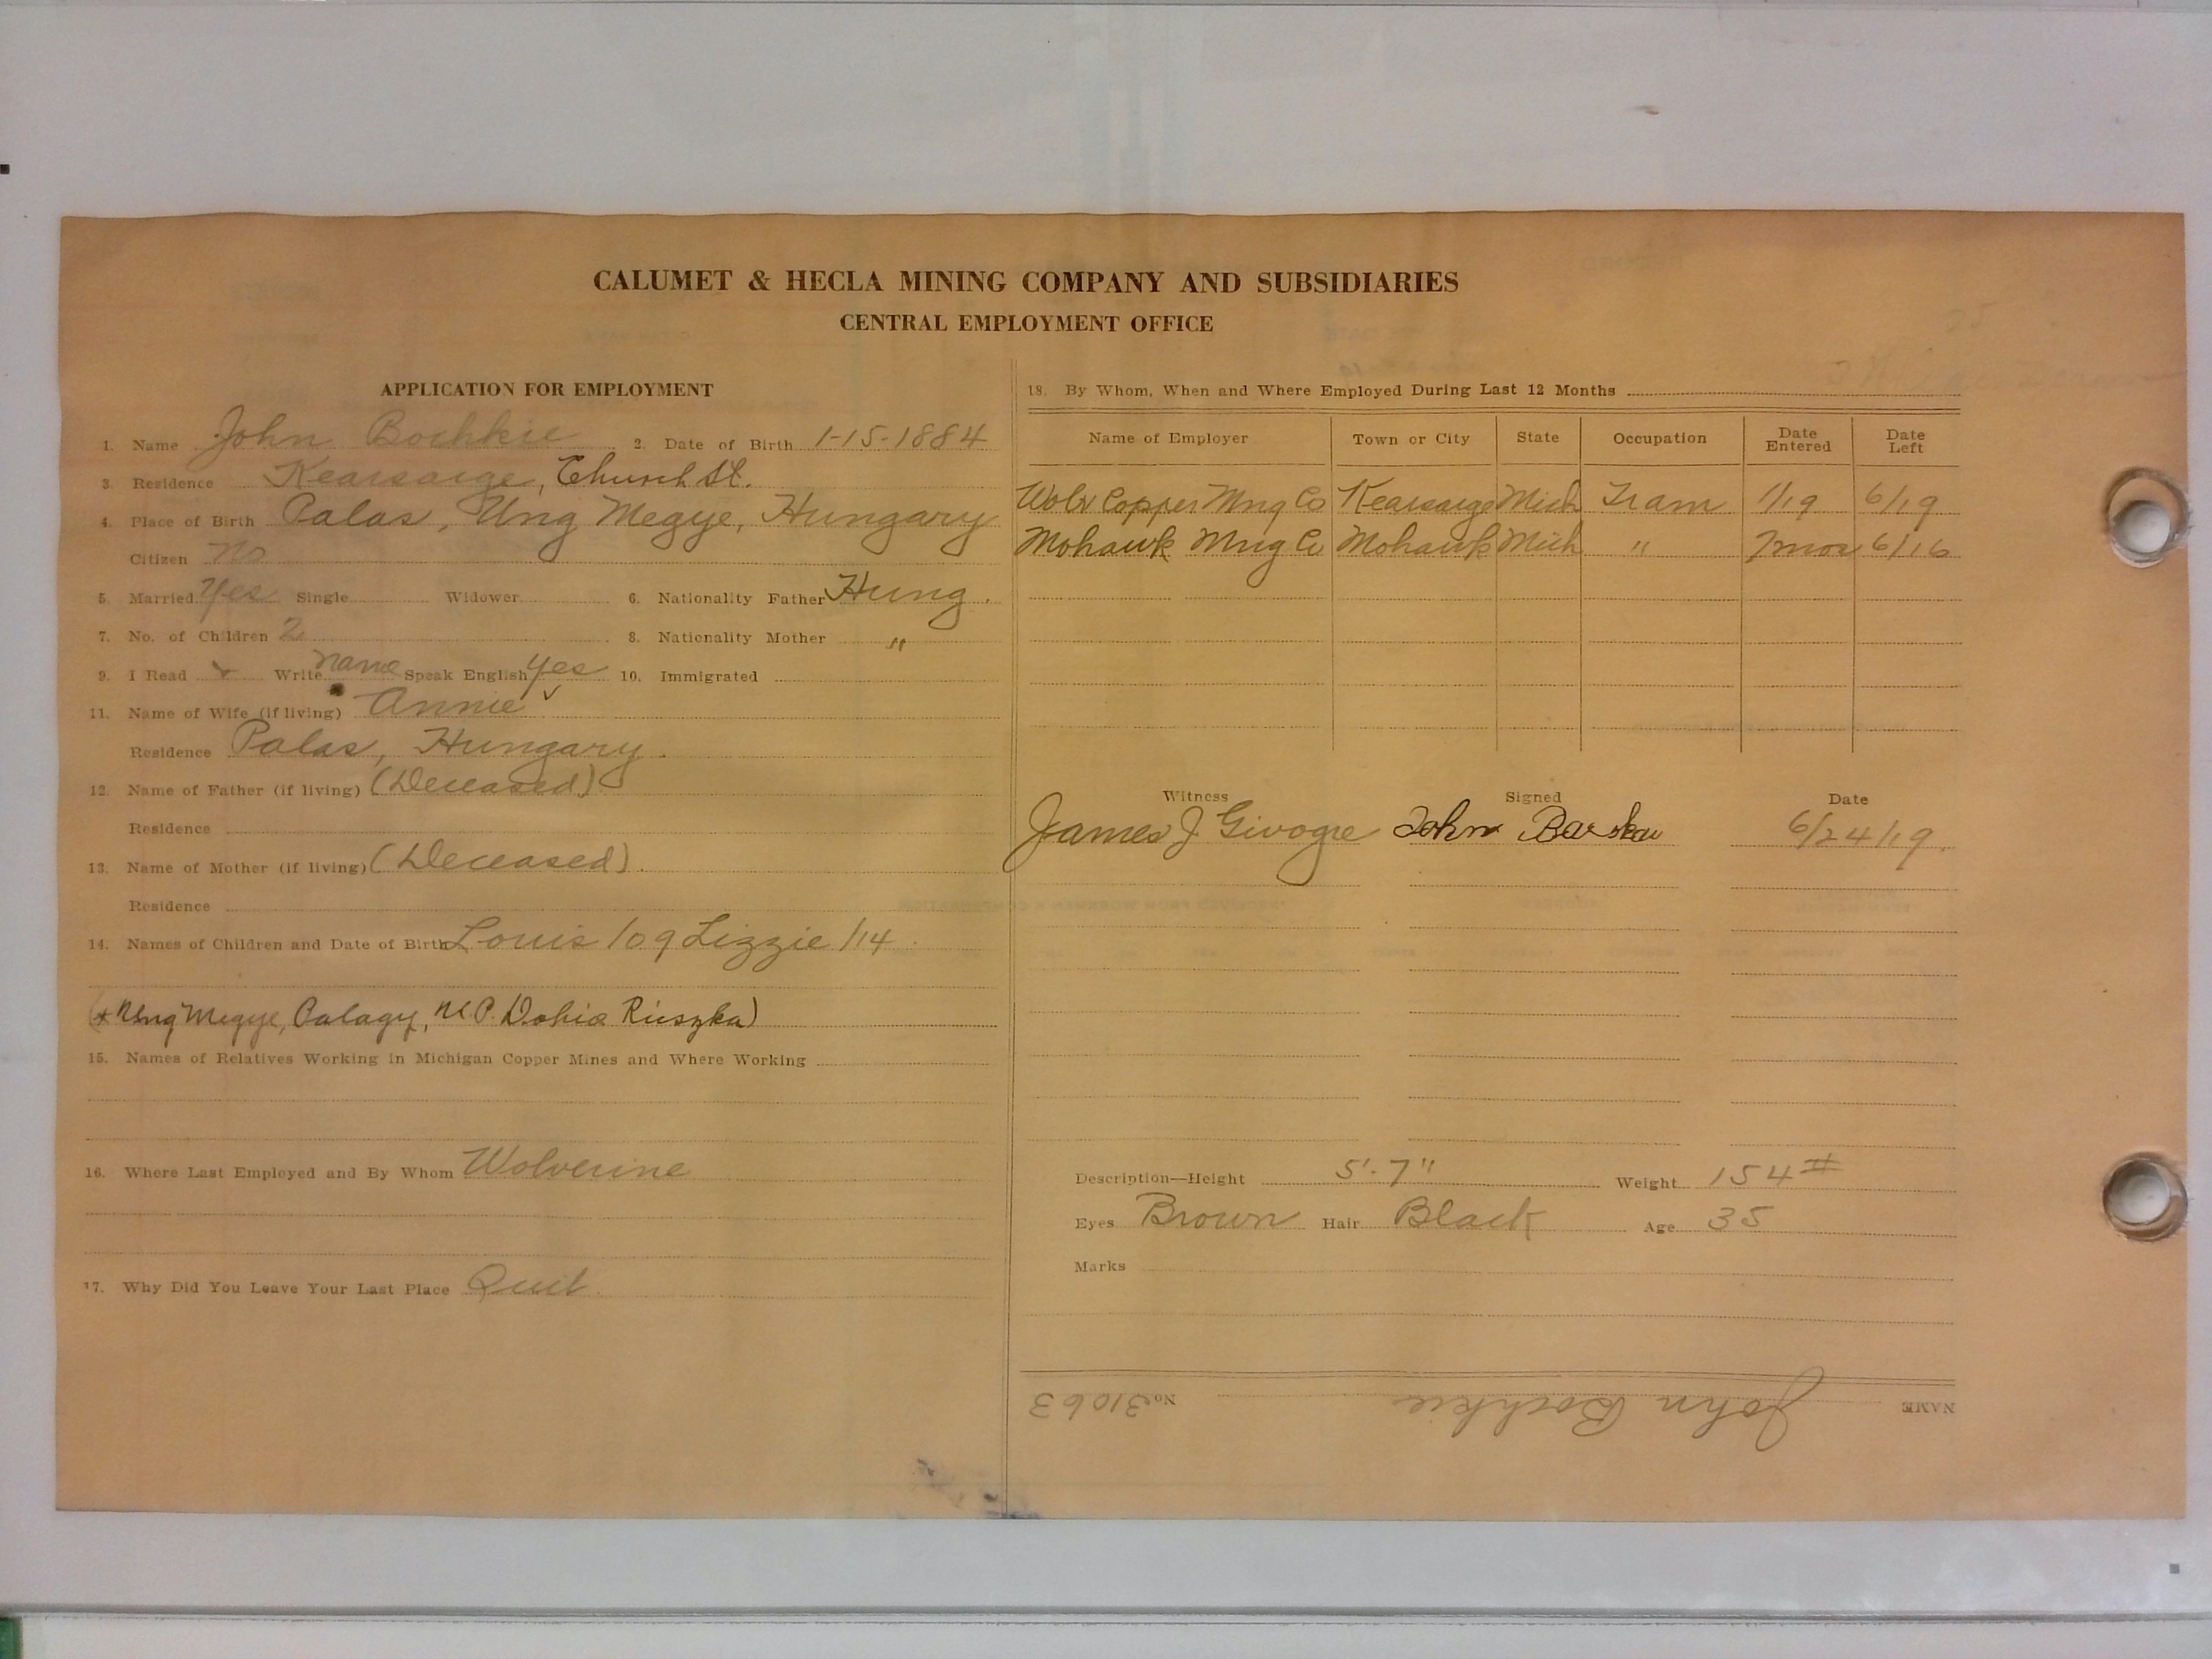 CALUMET & HECLA MINING COMPANY AND SUBSIDIARIES
CENTRAL EMPLOYMENT OFFICE
APPLICATION FOR EMPLOYMENT
1. Name John Bochkie 2. Date of Birth 1-15-1884
3. Residence Kearsarge, Church St.
4. Place of Birth Palas, Ung Megye, Hungary
Citizen No
5. Married Yes Single Widower 6. Nationality Father Hung.
7. No. of Children 2 8. Nationality Mother "
9. I Read Write name Speak English yes 10. Immigrated
11. Name of Wife (if living) Annie
Residence Palas, Hungary.
12. Name of Father (if living) (Deceased)
Residence
13. Name of Mother (if living) (Deceased).
Residence
14. Names of Children and Date of Birth Louis /09 Lizzie /14
(* Ung Megye, Palagy, Dohia Riszka)
15. Names of Relatives Working in Michigan Copper Mines and Where Working
16. Where Last Employed and By Whom Wolverine
17. Why Did You Leave Your Last Place Quit
18. By Whom, When and Where Employed During Last 12 Months
Name of Employer Town or City State Occupation Date Entered Date Left
Wolv Copper Mng Co Kearsarge Mich Tram 1/19 6/19
Mohawk Mng Co Mohawk Mich " 7 mos 6/16
Witness Signed Date
James J Givogre John 6/24/19.
Description—Height 5'-7" Weight 154 #
Eyes Brown Hair Black Age 35
Marks
NAME John Bochkie No. 31063